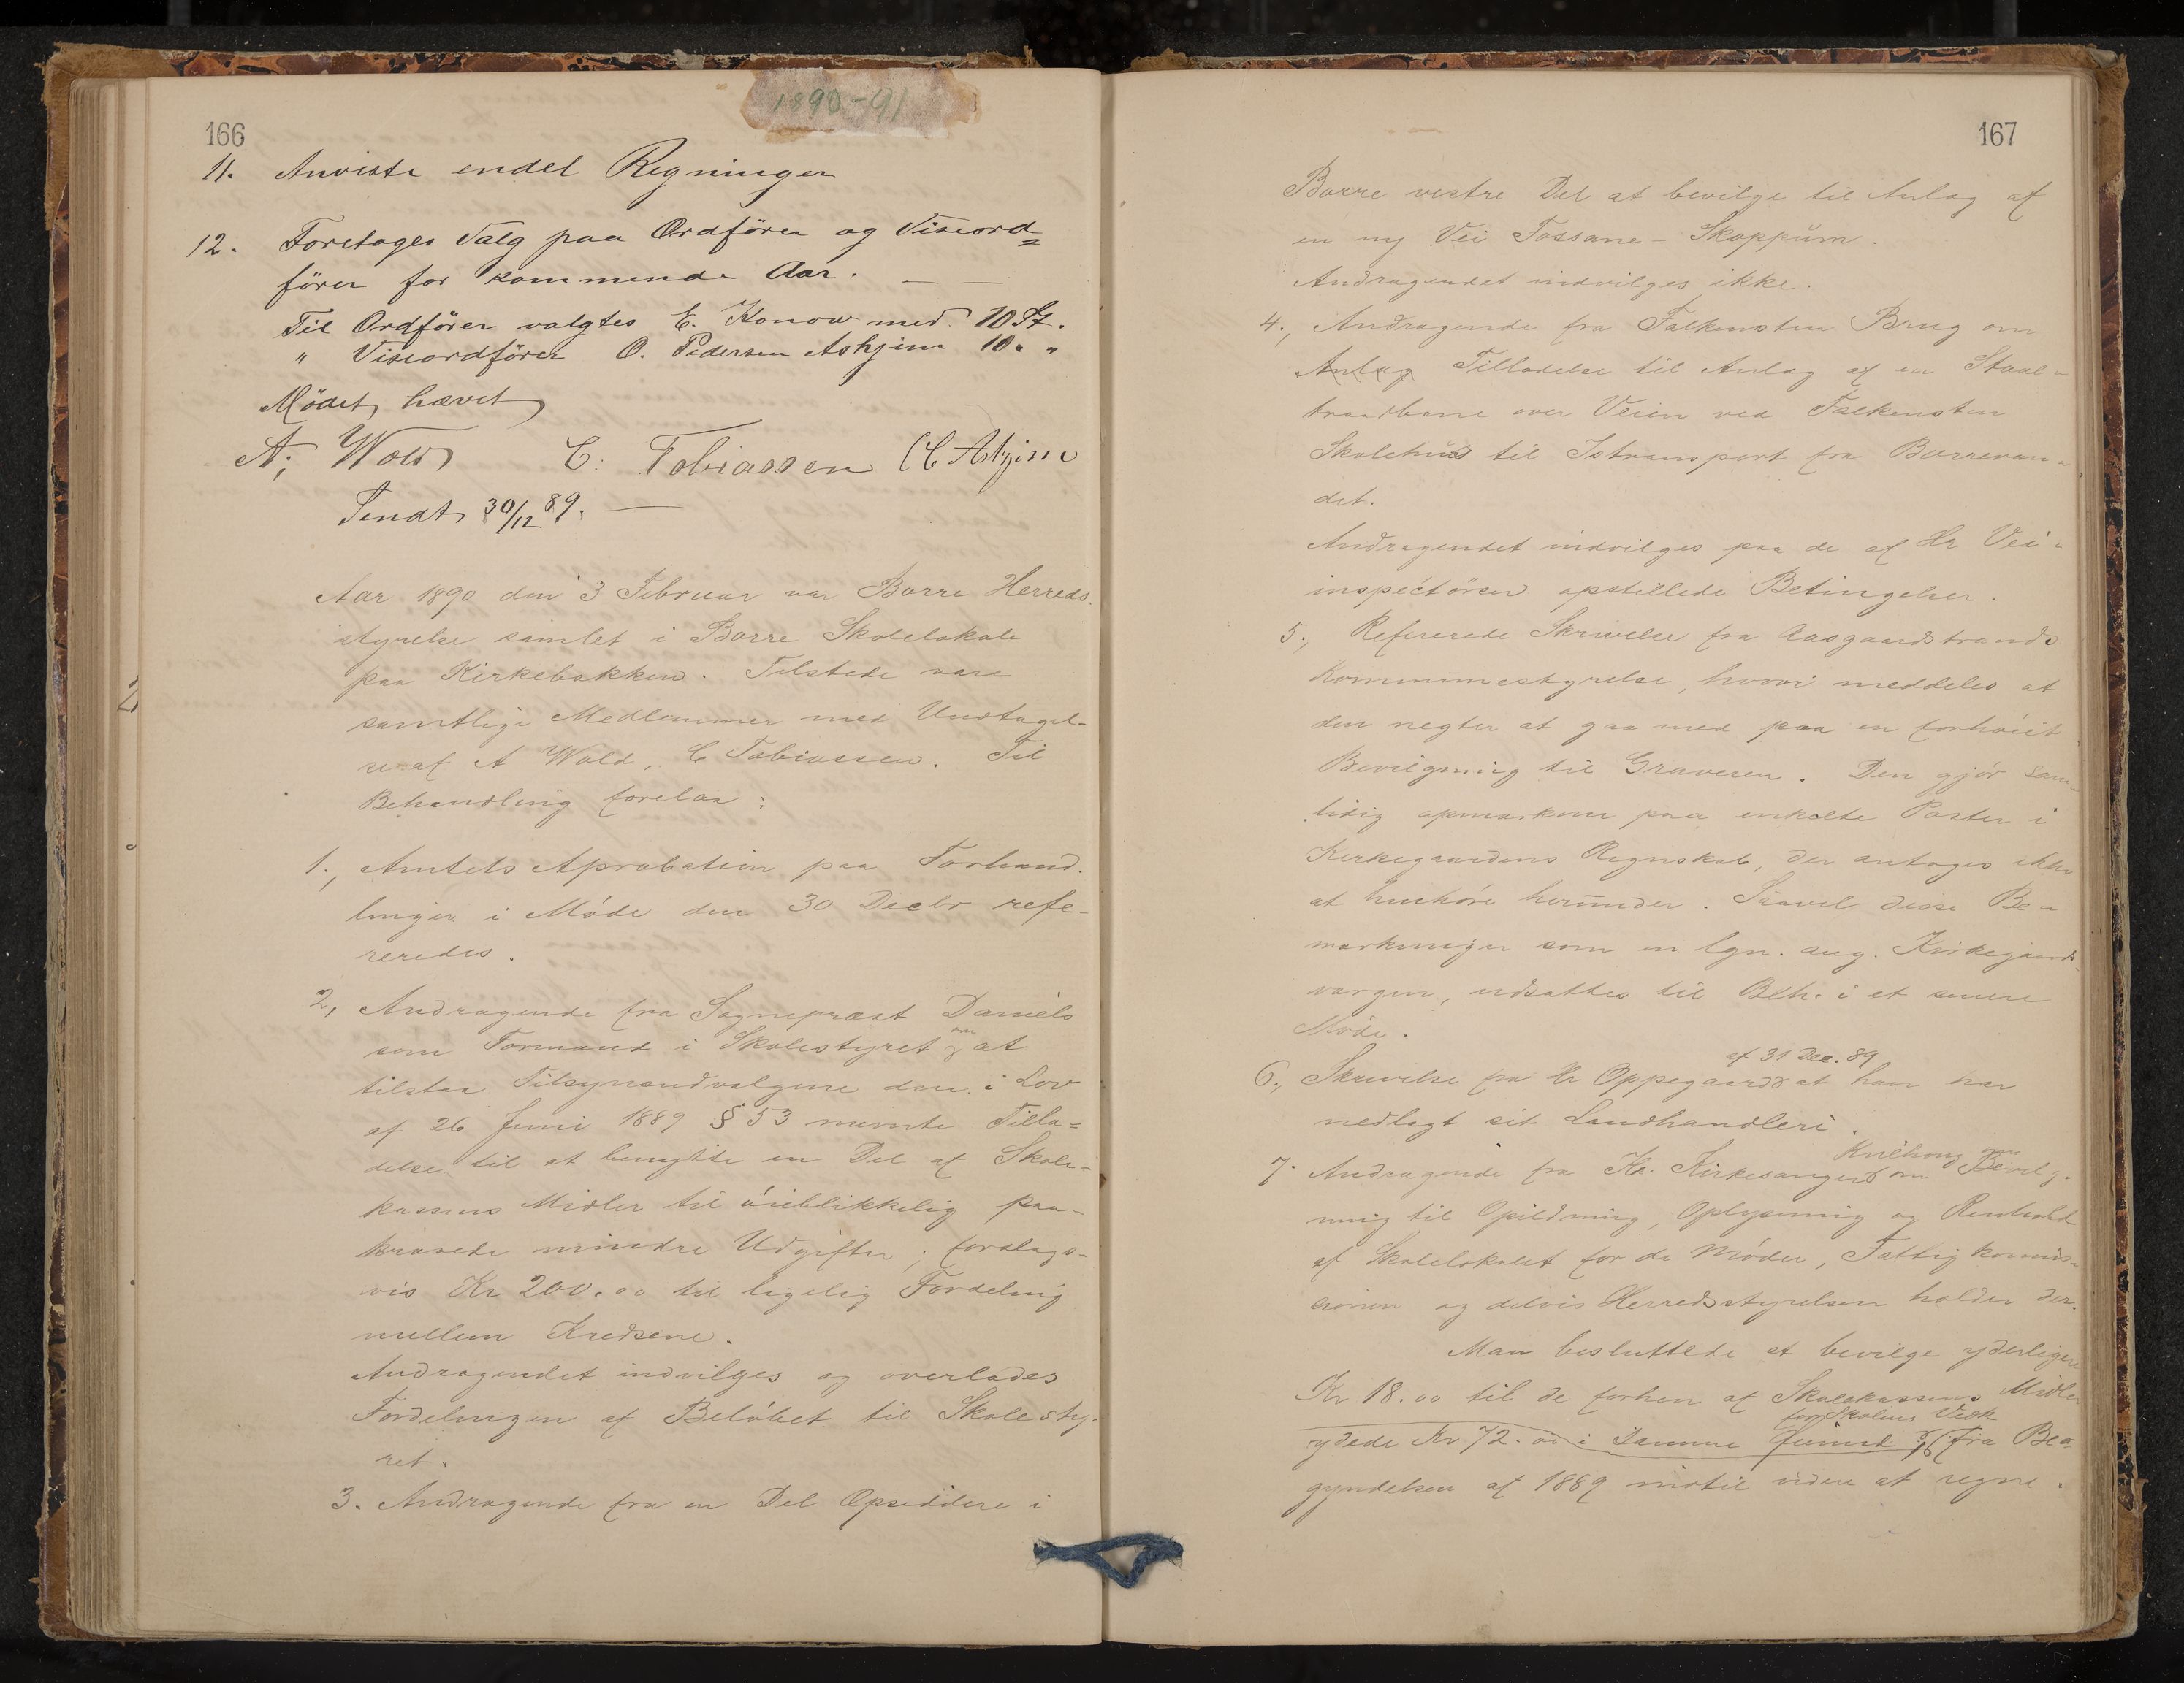 1890-91
166
11. Anviste endel Regninger
12. Foretages Valg paa Ordförer og Viseord=
förer for kommende Aar.
Til Ordförer valgtes E. Konow med 10 St.
" Viseordförer O. Pedersen Askjem 10 " "
Mödet hævet
A. Wold C. Tobiassen C Askjem
Sendt 30/12 89.
Aar 1890 den 3 Februar var Borre Herreds
styrelse samlet i Borre Skolelokale
paa Kirkebakken. Tilstede vare
samtlige Medlemmer med Undtagel-
se af A Wold, C Tobiassen. Til
Behandling forelaa:
1., Amtets Aprobation paa Forhand-
linger i Møde den 30 Decbr refe-
reredes.
2, Andragende fra Sognepræst Daniels
som Formand i Skolestyret om at
tilstaa Tilsynsudvalgene den i Lov
af 26 Juni 1889 § 53 nævnte Tilla=
delse til at benytte en Del af Skole-
kassens Midler til øieblikkelig paa-
krævede mindre Udgifter, forslags-
vis Kr 200.00 til ligelig Fordeling
mellem Kredsene.
Andragendet indvilges og overlades
Fordelingen af Beløbet til Skolesty-
ret.
3. Andragende fra en Del Opsiddere i
167
Borre vestre Del at bevilge til Anlæg af
en ny Vei Fossane - Skoppum.
Andragendet indvilges ikke.
4., Andragende fra Falkensten Brug om
Anlæg Tilladelse til Anlæg af en Staal-
traadbane over Veien ved Falkensten
Skolehus til Istransport fra Borrevan-
det.
Andragendet indvilges paa de af Hr Vei-
inspectören opstillede Betingelser.
5., Refererede Skrivelse fra Aasgaardstrands
Kommunestyrelse, hvori meddeles at
den negter at gaa med paa en forhøiet
Bevilgning til Graveren. Den gjør sam-
tidig opmærksom paa enkelte Poster i
Kirkegaardens Regnskab, der antages ikke
at henhøre herunder. Saavel disse Be-
mærkninger som en lgn. ang. Kirkegaards
vergen, udsattes til Beh. i et senere
Møde.
af 31 Dec. 89
6., Skrivelse fra Hr Oppegaard at han har
nedlagt sit Landhandleri.
Kvilhoug
7. Andragende fra Hr. Kirkesanger om Bevilg-
ning til Opildning, Oplysning og Renhold
af Skolelokalet for de Møder, Fattigkommis-
sionen og delvis Herredsstyrelsen holder der.
Man besluttede at bevilge yderligere
Kr 18.00 til de forhen af Skolekassens Midler
for Skolens Vedk
ydede Kr 72.00 i samme fra Be=
gyndelsen af 1889 indtil videre at regne.